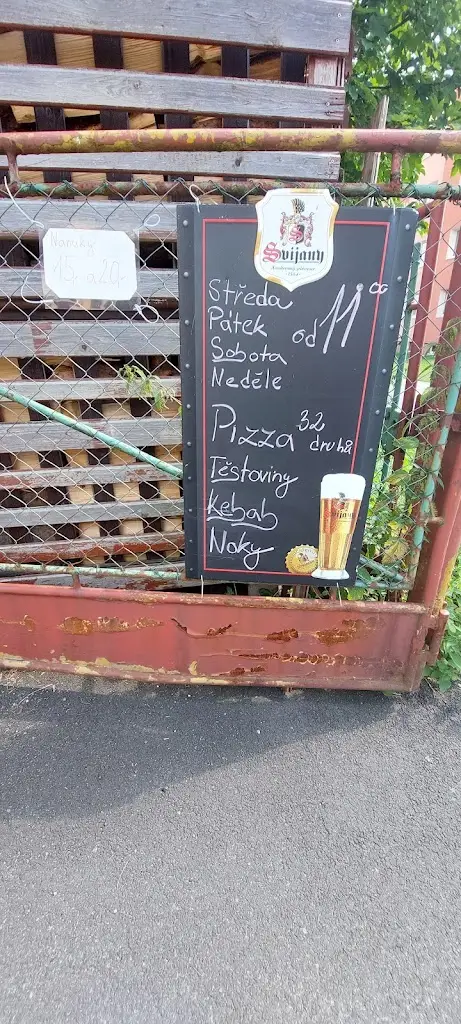 Nanuky
15,- a 20,-
Svijany
Středa
Pátek
od 11 00
Sobota
Neděle
Pizza 32 druhů
Těstoviny
Kebab
Noky
Svijany